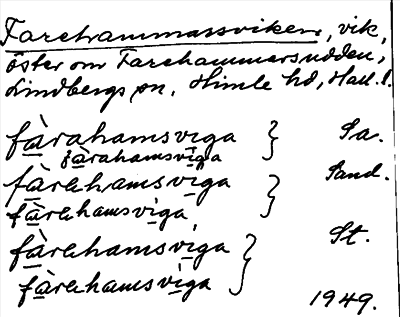 Farehammarsviken, vik,
öster om Farehammarsudden,
Lindbergs sn, Himle hd, Hall. l.
fàrahamsviga } Sa.
fàrahamsviga
fàrehamsviga } Sand.
fàrehamsviga
fàrehamsviga } St.
fàrehamsviga
1949.